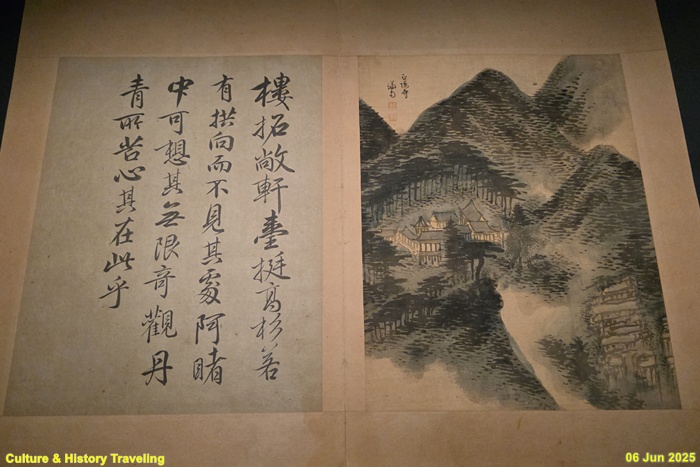 正陽寺
謙齋
樓拓敞軒臺挺高杉若
有拱向而不見其處阿睹
中可想其無限奇觀丹
青所苦心其在此乎
Culture & History Traveling
06 Jun 2025